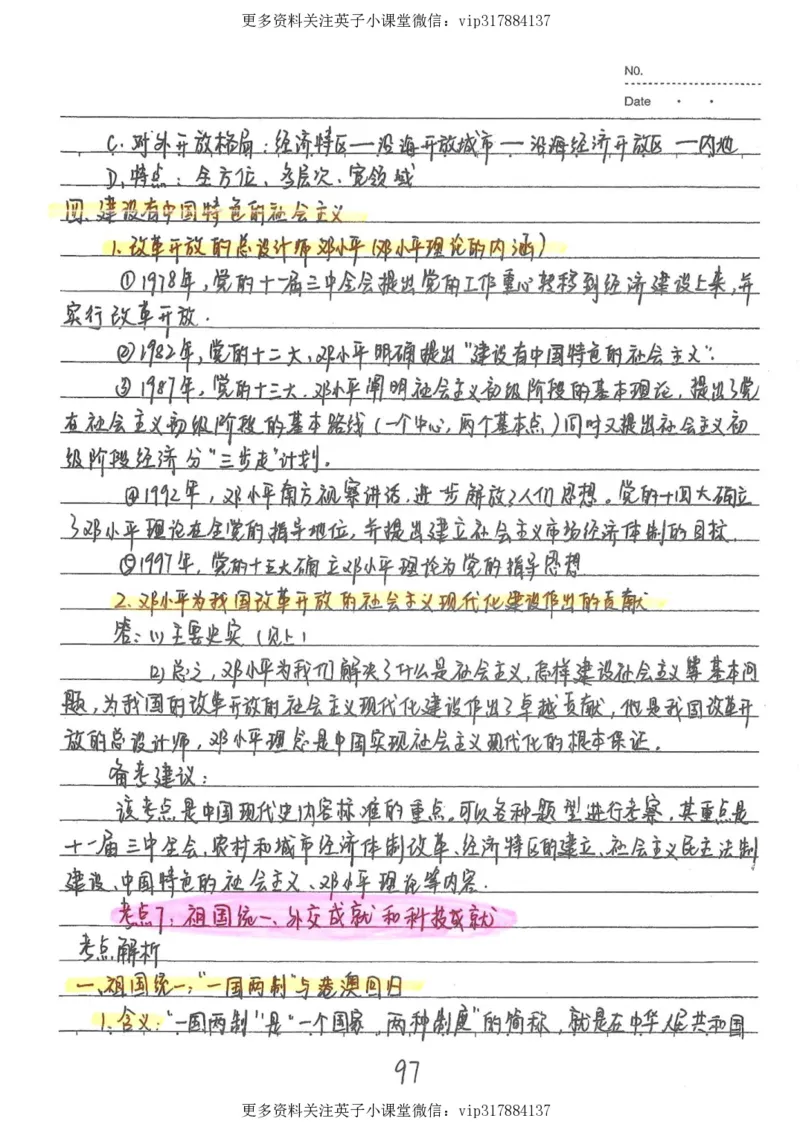 更多资料关注英子小课堂微信：vip317884137
NO.
Date
C.对外开放格局：经济特区—沿海开放城市—沿海经济开放区—内地
D.特点：全方位、多层次、宽领域
四、建设有中国特色的社会主义
1.改革开放的总设计师邓小平（邓小平理论的内涵）
①1978年，党的十一届三中全会提出党的工作重心转移到经济建设上来，并
实行改革开放．
②1982年，党的十二大，邓小平明确提出“建设有中国特色的社会主义”．
③1987年，党的十三大．邓小平阐明社会主义初级阶段的基本理论，提出了党
在社会主义初级阶段的基本路线（一个中心，两个基本点）同时又提出社会主义初
级阶段经济分“三步走”计划。
④1992年，邓小平南方视察讲话，进步解放了人们思想。党的十四大确立
了邓小平理论在全党的指导地位，并提出建立社会主义市场经济体制的目标．
⑤1997年，党的十五大确立邓小平理论为党的指导思想
2.邓小平为我国改革开放的社会主义现代化建设作出的贡献
答：(1)主要史实（见上）
(2)总之，邓小平为我们解决了什么是社会主义，怎样建设社会主义等基本问
题，为我国的改革开放的社会主义现代化建设作出了卓越贡献，他是我国改革开
放的总设计师，邓小平理念是中国实现社会主义现代化的根本保证。
备考建议：
该考点是中国现代史内容标准的重点。可以各种题型进行考察，其重点是
十一届三中全会、农村和城市经济体制改革、经济特区的建立、社会主义民主法制
建设、中国特色的社会主义、邓小平理论等内容．
考点7：祖国统一、外交成就和科技成就
考点解析
一、祖国统一：“一国两制”与港澳回归
1.含义：“一国两制”是“一个国家，两种制度”的简称，就是在中华人民共和国
97
更多资料关注英子小课堂微信：vip317884137